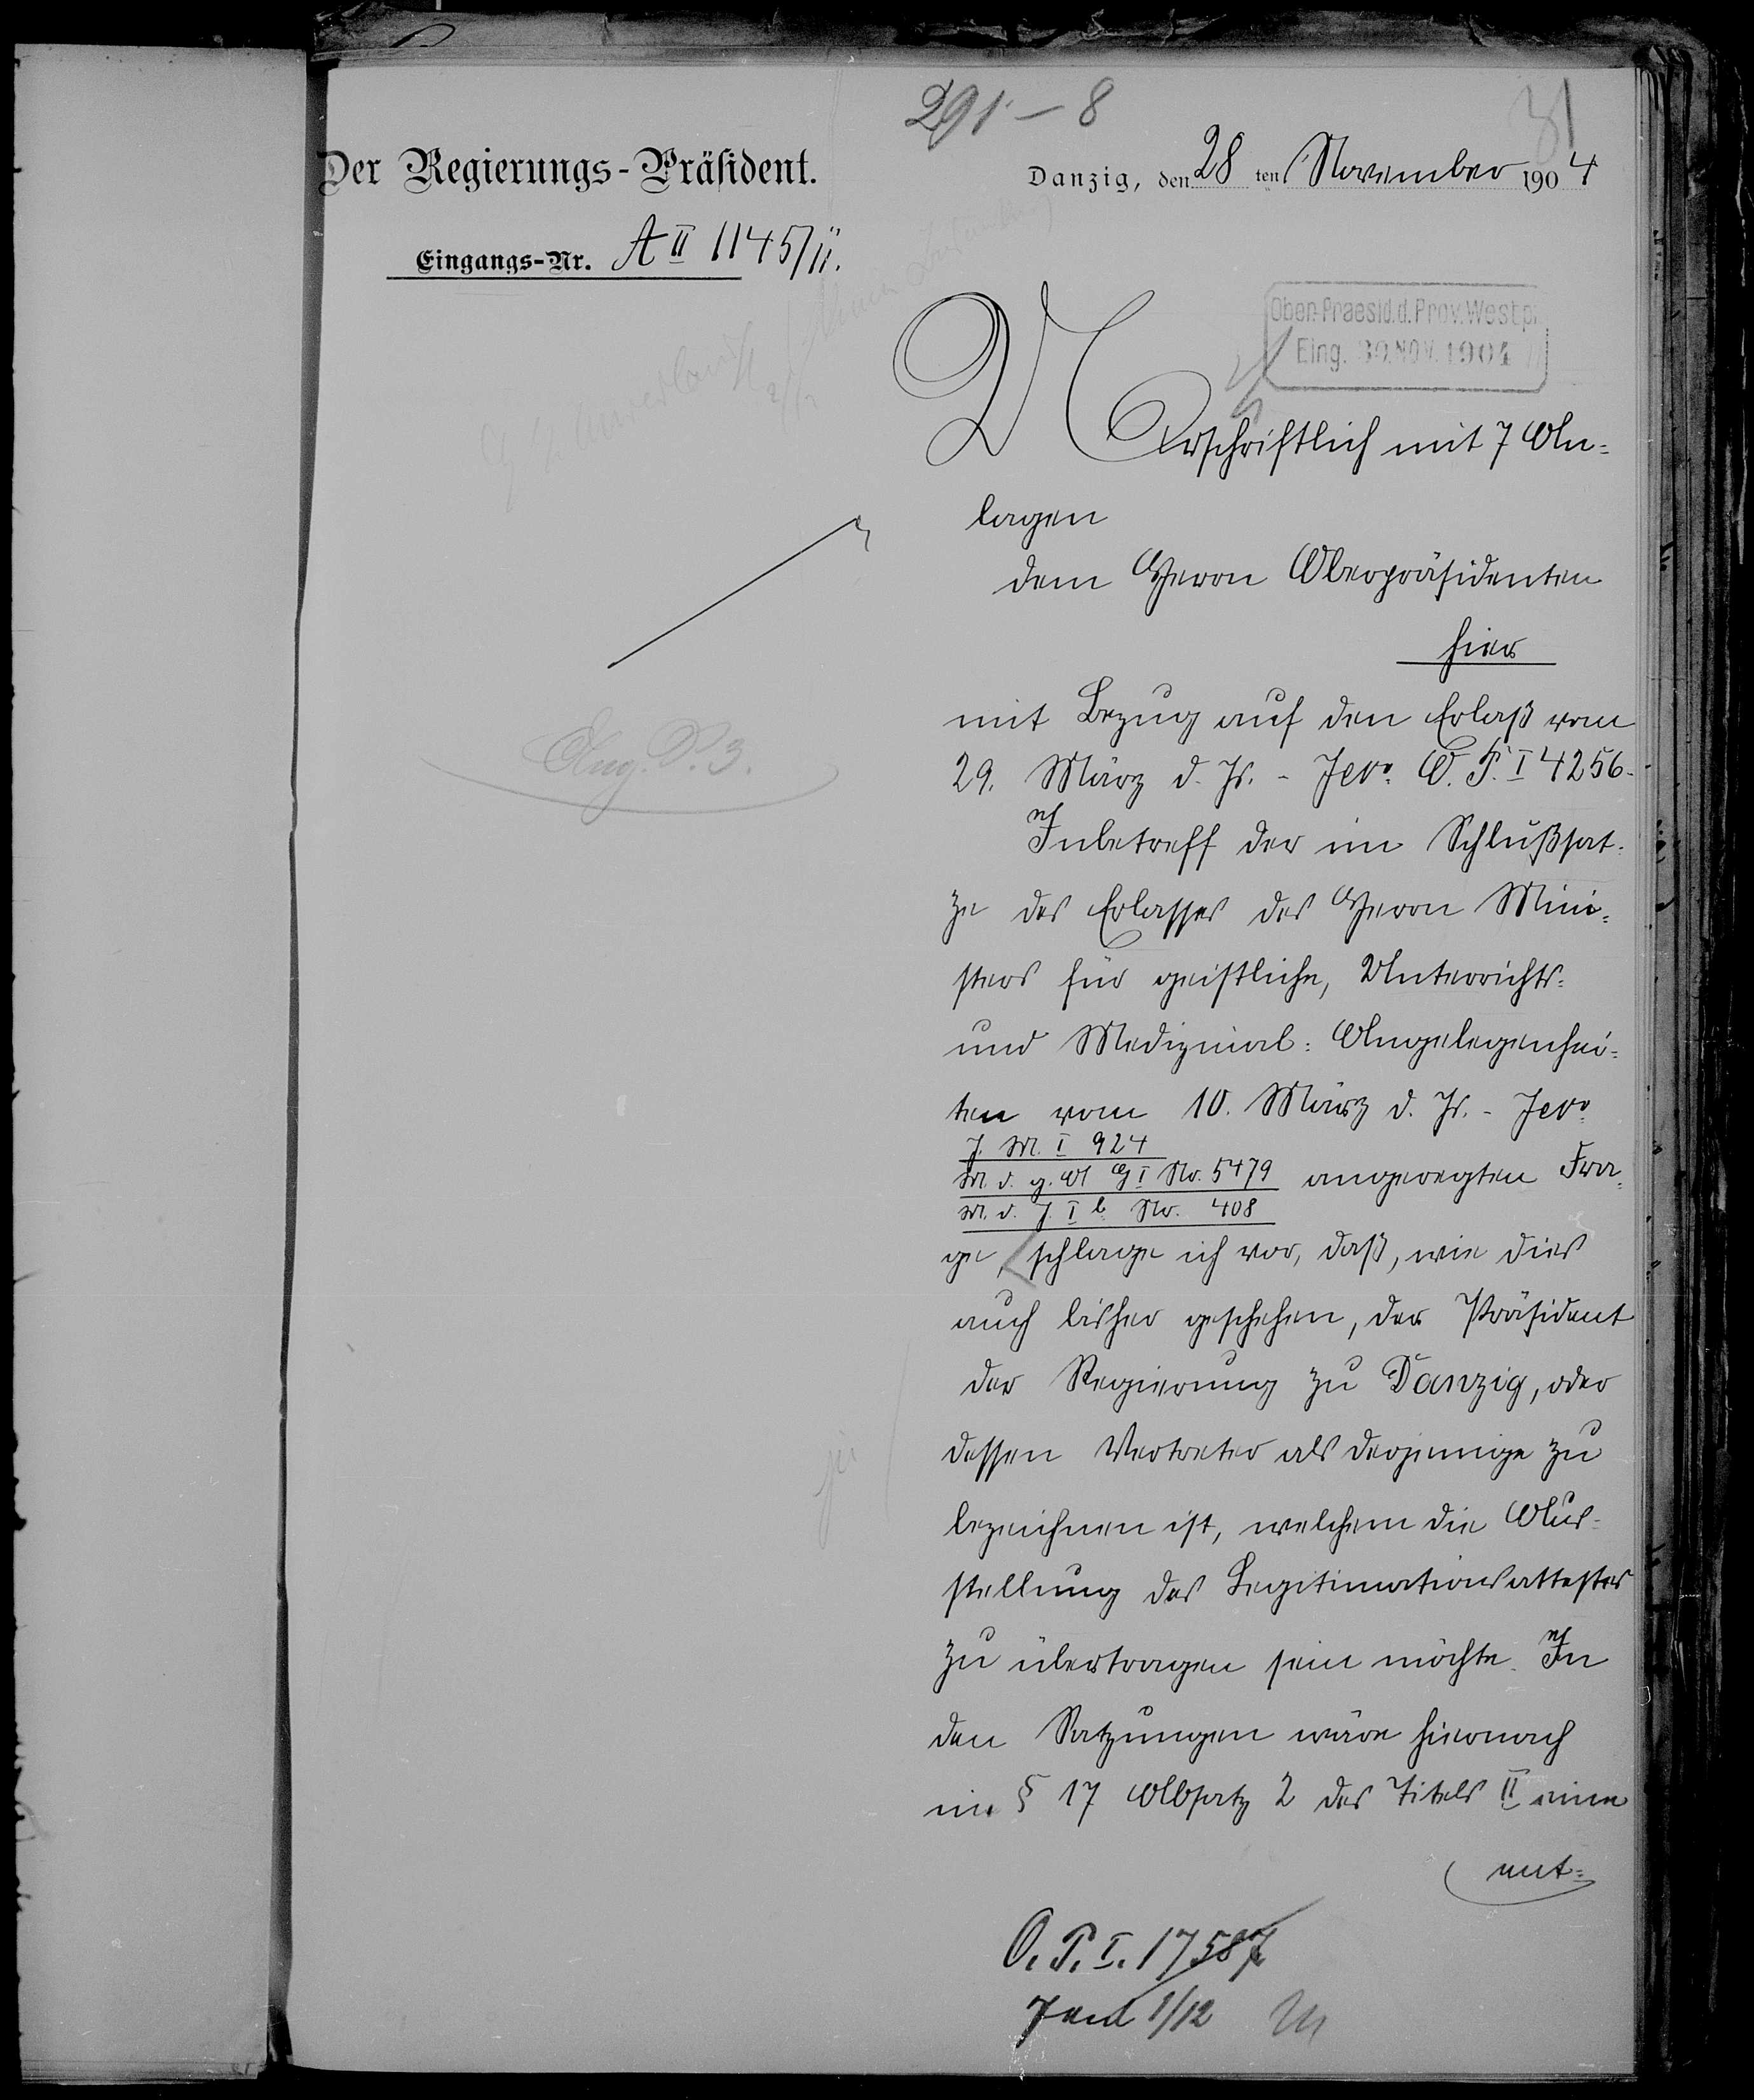 291 - 8
31
Der Regierungs-Präsident.
Danzig, den 28 ten November 1904
Eingangs-Nr. A II 1145/II.
Ober-Praesid. d. Prov. Westpr.
Eing. 30. NOV. 1904
Urschriftlich mit 7 An-
lagen
dem Herrn Oberpräsidenten
hier
mit Bezug auf den Erlaß vom
29. März d. Js. - O. P. I 4256 -
Inbetreff der im Schlußsat-
ze des Erlasses des Herrn Mini-
sters für geistliche, Unterrichts-
und Medizinal- Angelegenhei-
ten vom 10. März d. Js. -
J. M. I 924
M. d. g. A G I No. 5479 angeregten Fra-
M. d. J. I b No. 408
ge, schlage ich vor, daß, wie dies
auch bisher geschehen, der Präsident
der Regierung zu Danzig, oder
dessen Vertreter als derjenige zu
bezeichnen ist, welchem die Aus-
stellung des Legitimationsattestes
zu übertragen sein möchte. In
den Satzungen wäre hiernach
im § 17 Absatz 2 des Titels II eine
ent-
Ang. P. 3.
O. P. I. 17587
1/12